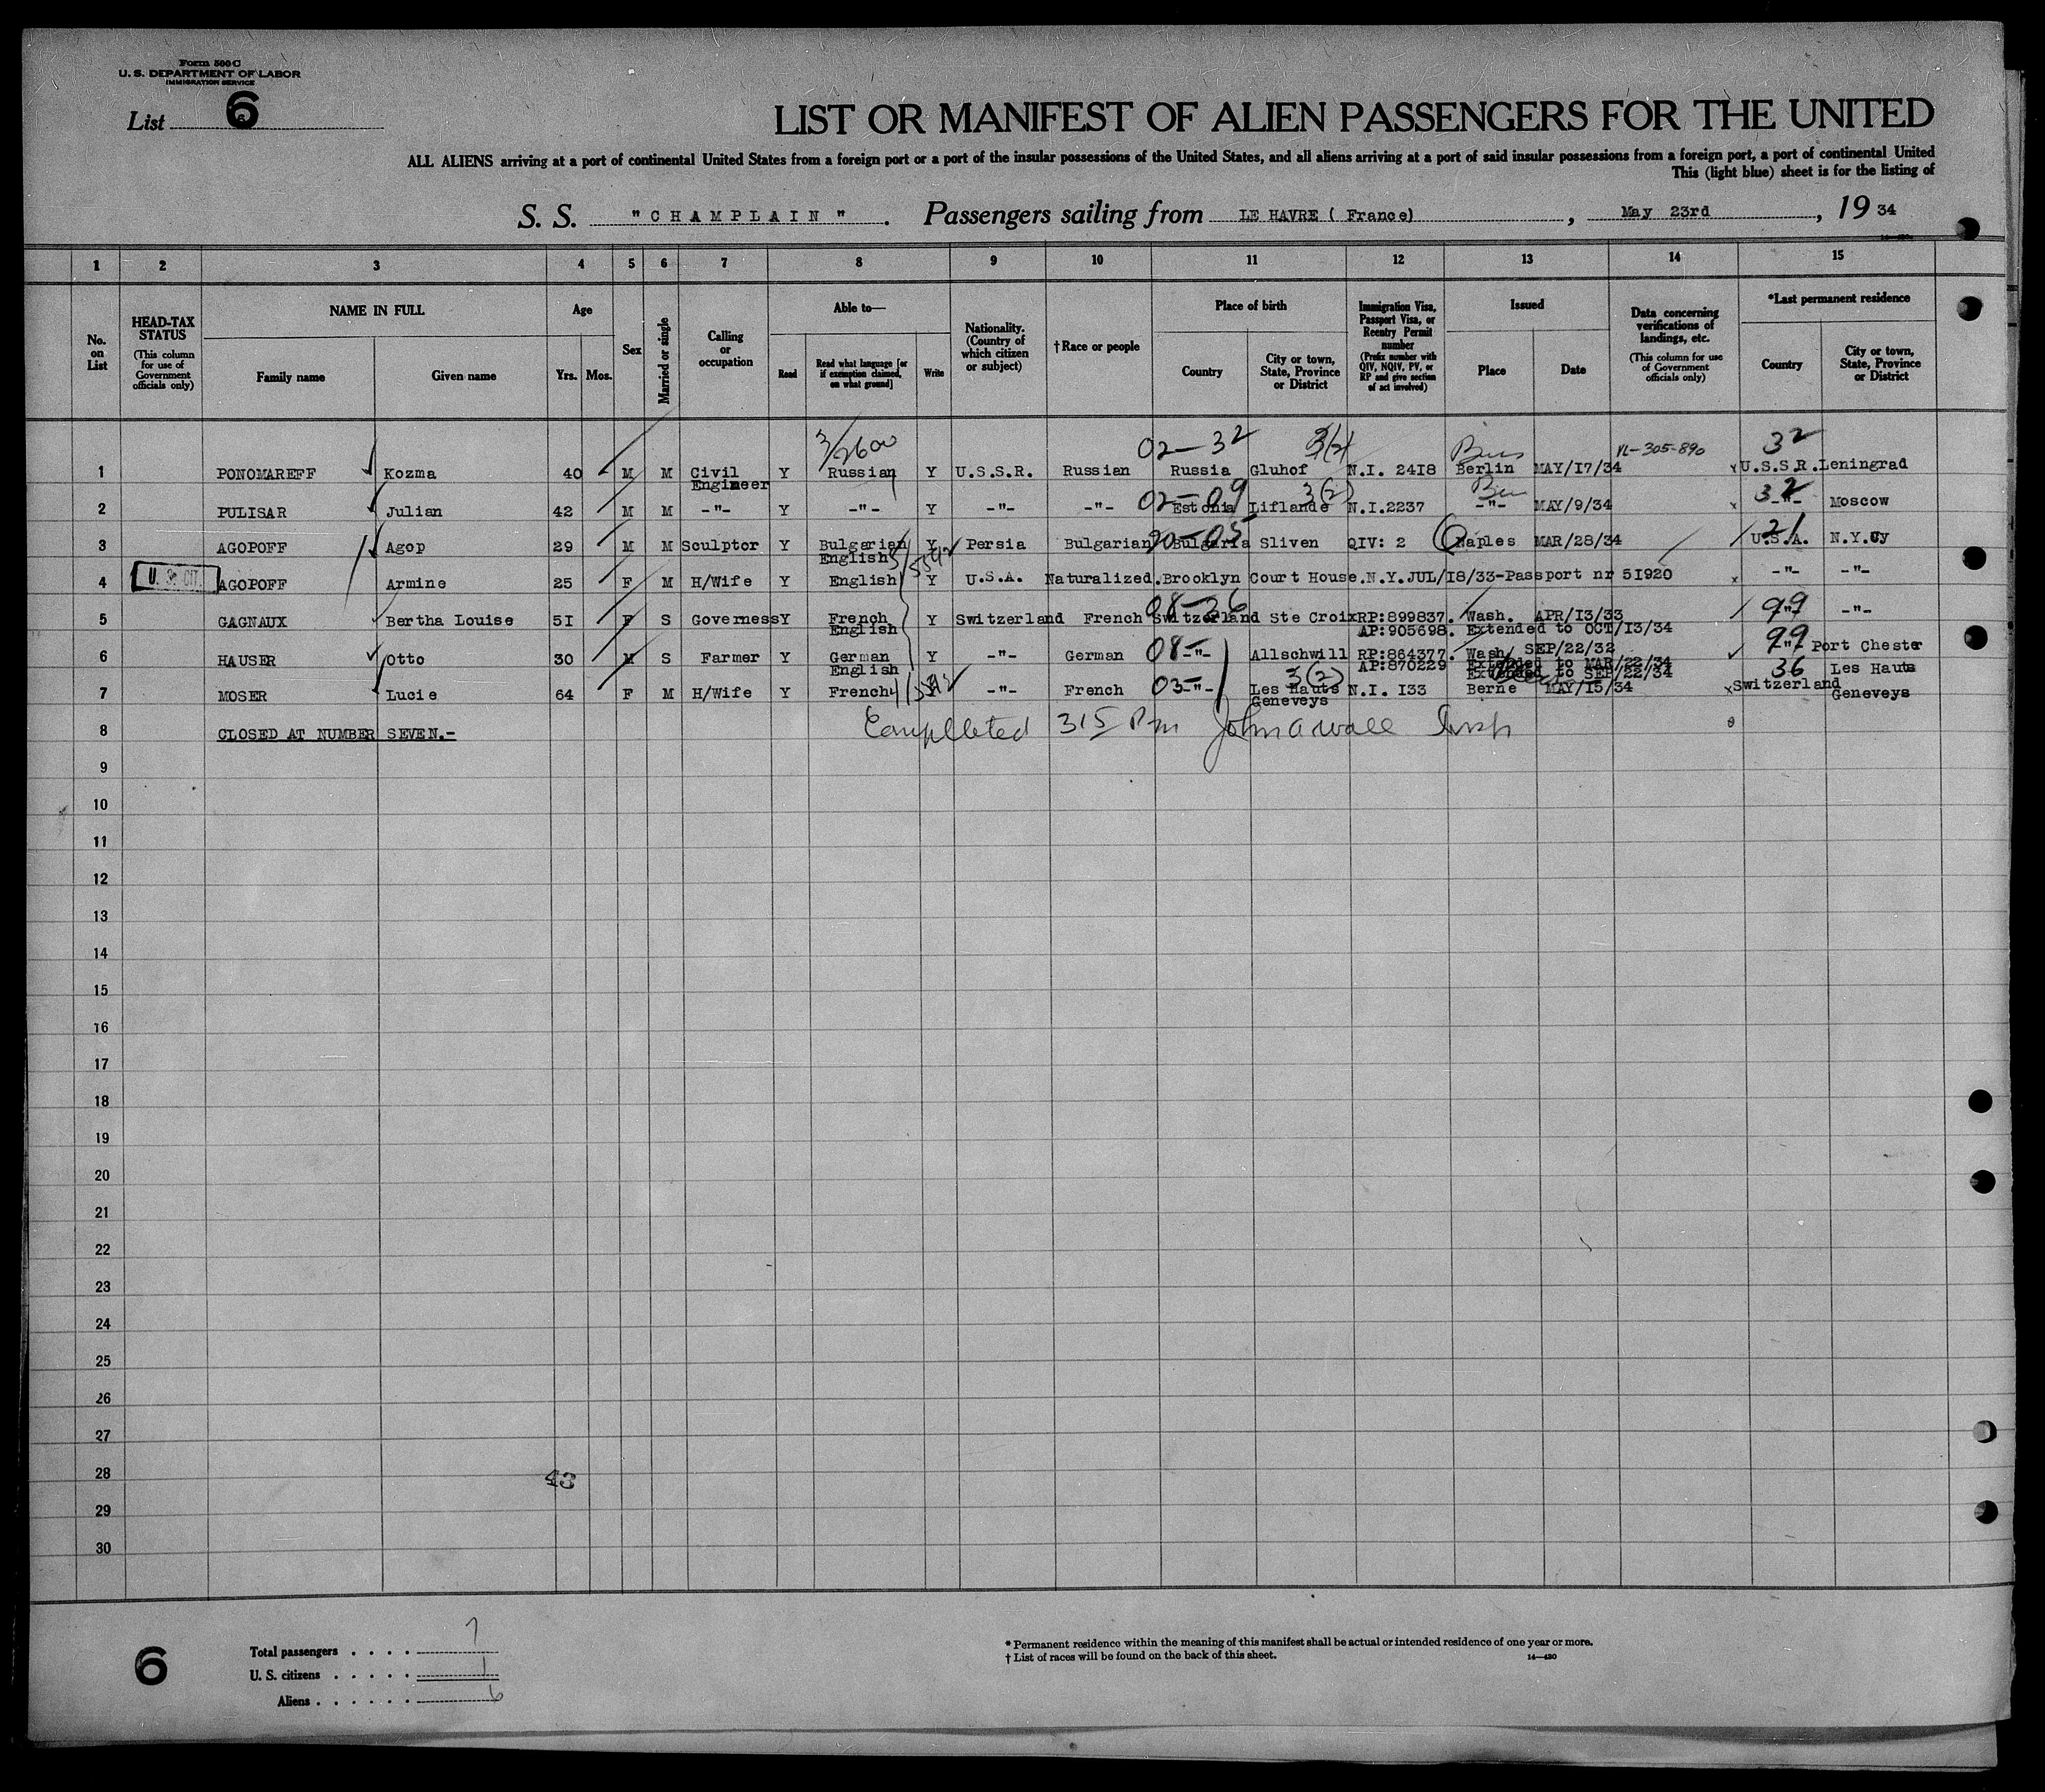 Form 500 C
U. S. DEPARTMENT OF LABOR
IMMIGRATION SERVICE
List 6
LIST OR MANIFEST OF ALIEN PASSENGERS FOR THE UNITED
ALL ALIENS arriving at a port of continental United States from a foreign port or a port of the insular possessions of the United States, and all aliens arriving at a port of said insular possessions from a foreign port, a port of continental United
This (light blue) sheet is for the listing of
S. S. "CHAMPLAIN". Passengers sailing from LE HAVRE ( France), May 23rd, 19 34
1 2 3 4 5 6 7 8 9 10 11 12 13 14 15
No. on List
HEAD-TAX STATUS (This column for use of Government officials only)
NAME IN FULL
Family name Given name
Age
Yrs. Mos.
Sex
Married or single
Calling or occupation
Able to—
Read Read what language [or if exemption claimed, on what ground] Write
Nationality. (Country of which citizen or subject)
† Race or people
Place of birth
Country City or town, State, Province or District
Immigration Visa, Passport Visa, or Reentry Permit number (Prefix number with QIV, NQIV, PV, or RP and give section of act involved)
Issued
Place Date
Data concerning verifications of landings, etc. (This column for use of Government officials only)
*Last permanent residence
Country City or town, State, Province or District
3/2600 02-32 3(2) VL-305-890 32
1 PONOMAREFF Kozma 40 M M Civil Engineer Y Russian Y U.S.S.R. Russian Russia Gluhof N.I. 2418 Berlin MAY/17/34 U.S.S.R. Leningrad
02-09 3(2) 32
2 PULISAR Julian 42 M M -"- Y -"- Y -"- -"- Estonia Liflande N.I.2237 -"- MAY/9/34 -"- Moscow
90-05 21
3 AGOPOFF Agop 29 M M Sculptor Y Bulgarian English Y Persia Bulgarian Bulgaria Sliven QIV: 2 Naples MAR/28/34 U.S.A. N.Y.Cy
U. S. CIT.
4 AGOPOFF Armine 25 F M H/Wife Y English Y U.S.A. Naturalized.Brooklyn Court House.N.Y.JUL/18/33-Passport nr 51920 -"- -"-
08-36 99
5 GAGNAUX Bertha Louise 51 F S Governess Y French English Y Switzerland French Switzerland Ste Croix RP:899837. Wash. APR/13/33 -"- -"-
AP:905698. Extended to OCT/13/34
08- 99
6 HAUSER Otto 30 M S Farmer Y German English Y -"- German -"- Allschwill RP:864377. Wash. SEP/22/32 -"- Port Chester
AP:870229 Extended to MAR/22/34
Extended to SEP/22/34
03- 3(2) 36
7 MOSER Lucie 64 F M H/Wife Y French Y -"- French -"- Les Hauts Geneveys N.I. 133 Berne MAY/15/34 Switzerland Les Hauts Geneveys
8 CLOSED AT NUMBER SEVEN.- Completed 315 Pm John A Wall Insp
9
10
11
12
13
14
15
16
17
18
19
20
21
22
23
24
25
26
27
28 43
29
30
6
Total passengers . . . . 7
U. S. citizens . . . . . 1
Aliens . . . . . . 6
* Permanent residence within the meaning of this manifest shall be actual or intended residence of one year or more.
† List of races will be found on the back of this sheet. 14—430